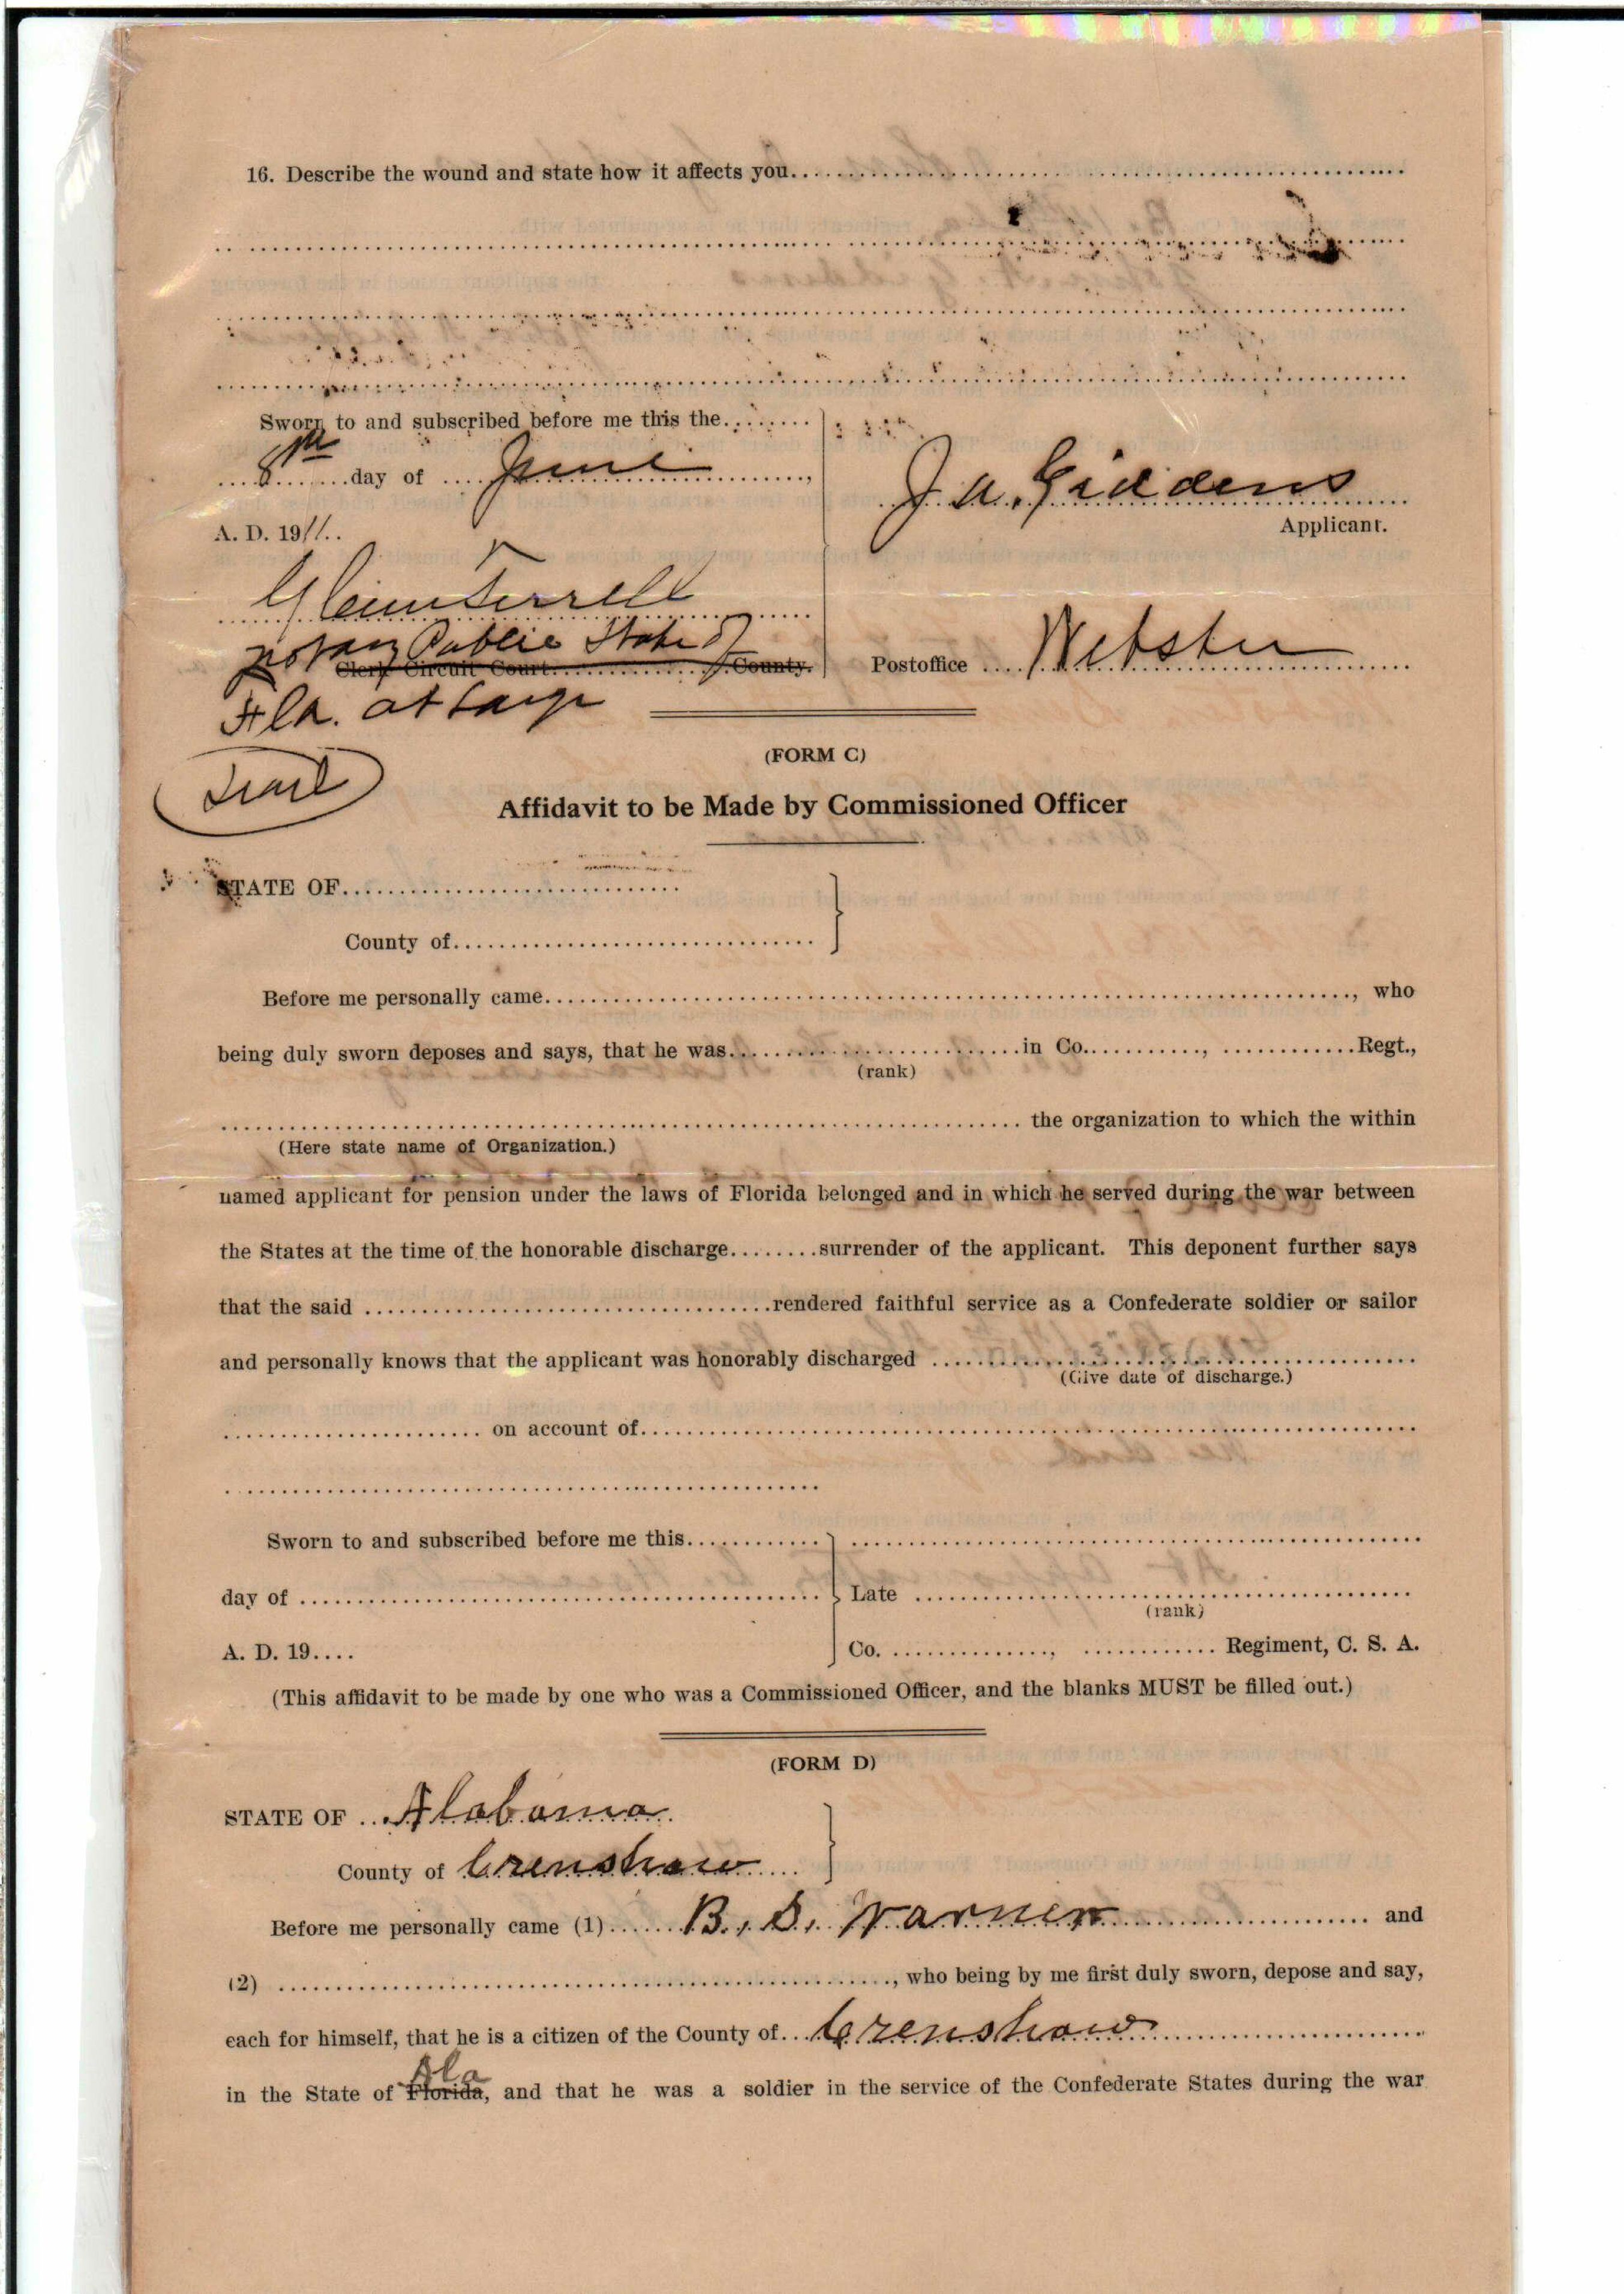 16. Describe the wound and state how it affects you
Sworn to and subscribed before me this the
8th day of June
A. D. 1911
J. A. Giddens
Applicant.
Glenn Terrell
Notary Public State of
Clerk Circuit Court County.
Fla. at Large
Postoffice Webster
(FORM C)
Seal
Affidavit to be Made by Commissioned Officer
STATE OF
County of
Before me personally came, who
being duly sworn deposes and says, that he was in Co., Regt.,
(rank)
the organization to which the within
(Here state name of Organization.)
named applicant for pension under the laws of Florida belonged and in which he served during the war between
the States at the time of the honorable discharge surrender of the applicant. This deponent further says
that the said rendered faithful service as a Confederate soldier or sailor
and personally knows that the applicant was honorably discharged
(Give date of discharge.)
on account of
Sworn to and subscribed before me this
day of
Late
(rank)
A. D. 19
Co. , Regiment, C. S. A.
(This affidavit to be made by one who was a Commissioned Officer, and the blanks MUST be filled out.)
(FORM D)
STATE OF Alabama
County of Crenshaw
Before me personally came (1) B. S. Varner and
(2) , who being by me first duly sworn, depose and say,
each for himself, that he is a citizen of the County of Crenshaw
Ala
in the State of Florida, and that he was a soldier in the service of the Confederate States during the war